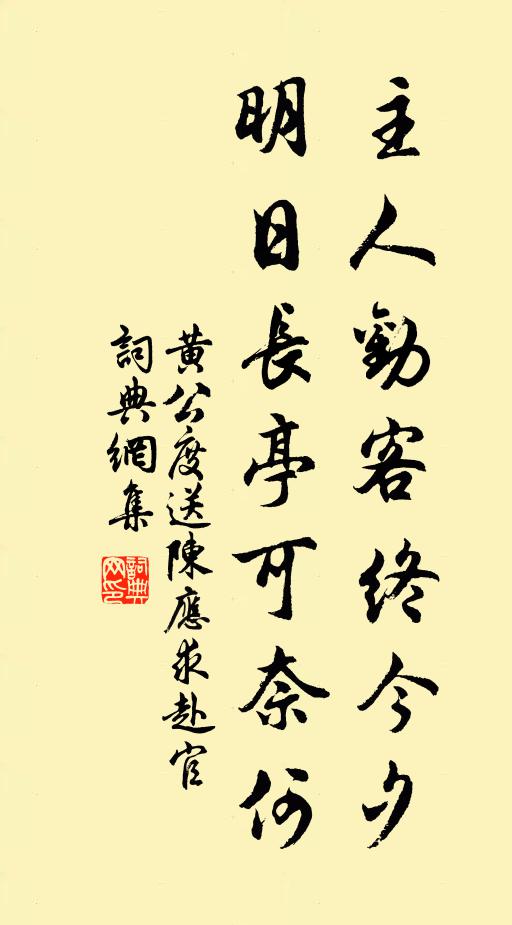 主人勸客終今夕
明日長亭可奈何
黃公度送陳應求赴官
詞典網集
詞典網印